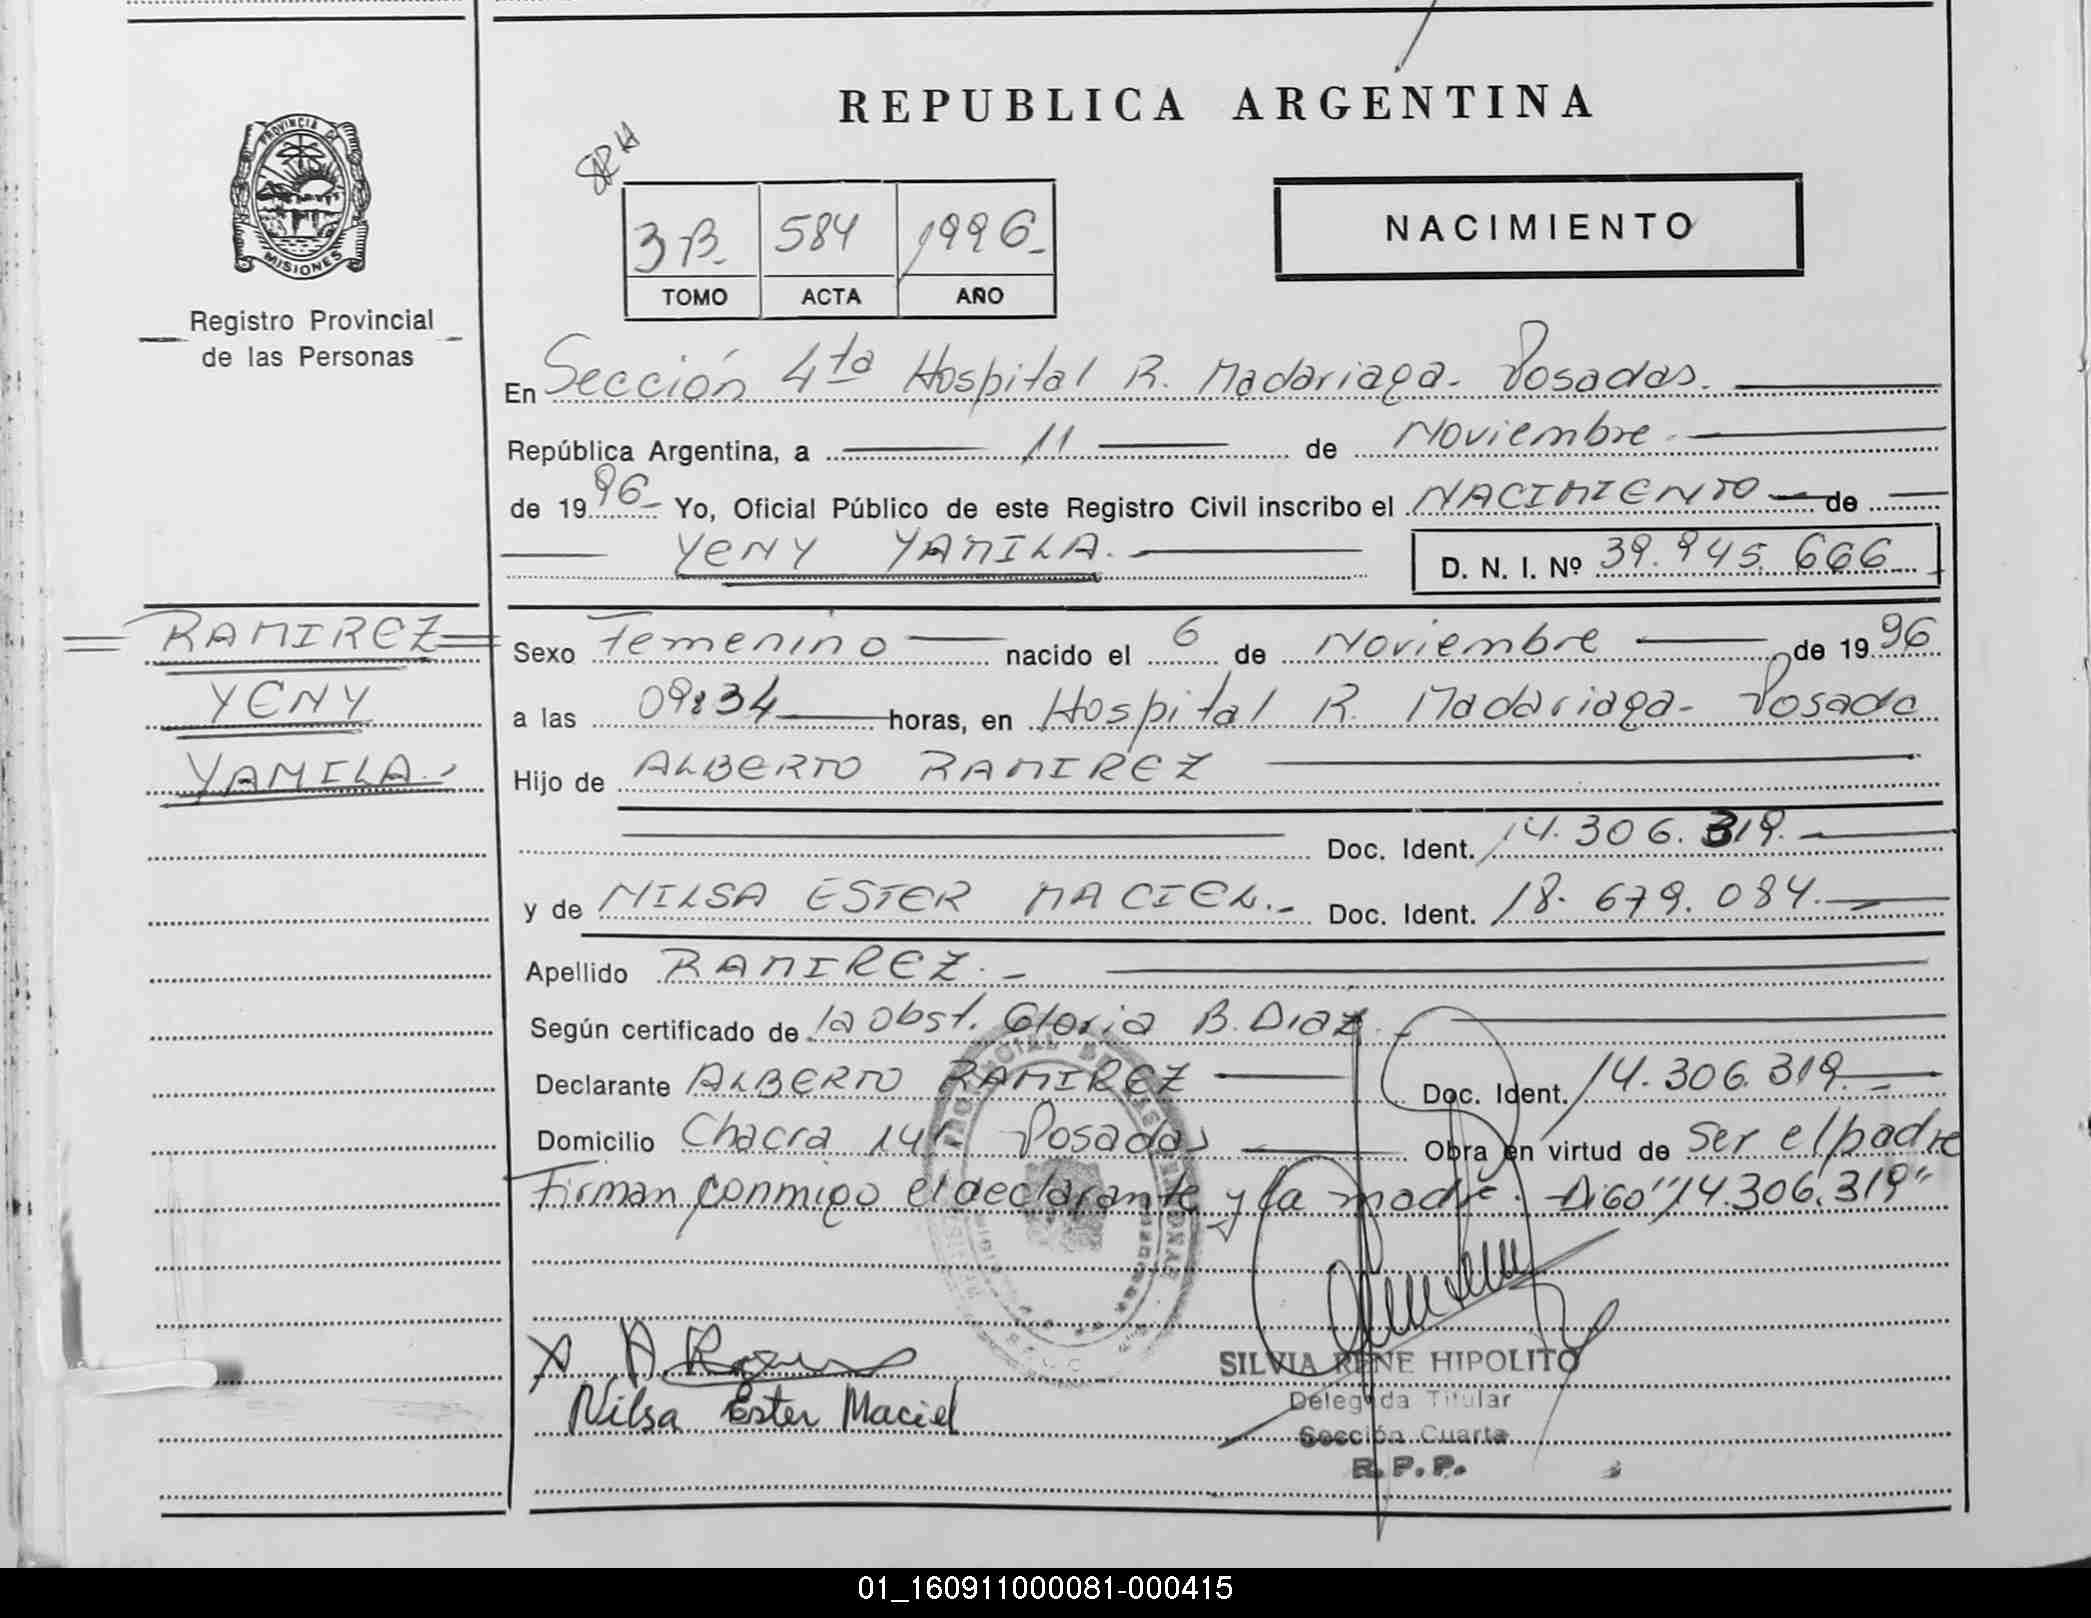 REPUBLICA ARGENTINA
SRH
PROVINCIA DE
MISIONES
Registro Provincial
de las Personas
3B. 584 1996
TOMO ACTA AÑO
NACIMIENTO
En Sección 4ta Hospital R. Madariaga. Posadas.
República Argentina, a 11 de Noviembre
de 1996 Yo, Oficial Público de este Registro Civil inscribo el NACIMIENTO de
YENY YAMILA.
D. N. I. Nº 39.945.666
RAMIREZ
YENY
YAMILA.
Sexo Femenino nacido el 6 de Noviembre de 1996
a las 09:34 horas, en Hospital R. Madariaga - Posada
Hijo de ALBERTO RAMIREZ
Doc. Ident. 14.306.319.
y de NILSA ESTER MACIEL. Doc. Ident. 18.679.084.
Apellido RAMIREZ.
Según certificado de la obst. Gloria B. Diaz.
Declarante ALBERTO RAMIREZ Doc. Ident. 14.306.319.
Domicilio Chacra Posadas Obra en virtud de Ser el padre
Firman conmigo el declarante y la madre. Digo "14.306.319"
Nilsa Ester Maciel
SILVIA RENE HIPOLITO
Delegada Titular
Sección Cuarta
R.P.P.
01_160911000081-000415